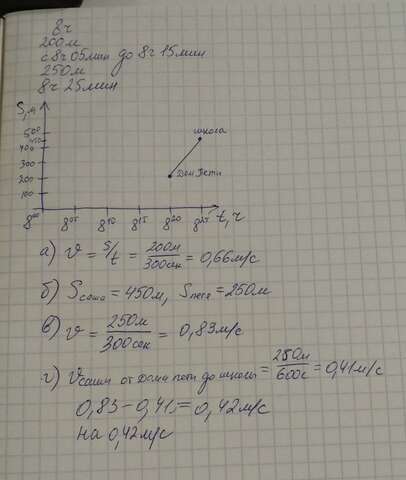 8ч
200м
с 8ч 05мин до 8ч 15мин
250м
8ч 25мин
S, м
500
450
400
300
200
100
школа
Дом Пети
8⁰⁰ 8⁰⁵ 8¹⁰ 8¹⁵ 8²⁰ 8²⁵ t, ч
а) v = S/t = 200м/300сек = 0,66м/с
б) Sсаша = 450м, Sпетя = 250м
в) v = 250м/300сек = 0,83м/с
г) vсаши от дома пети до школы = 250м/600с = 0,41м/с
0,83 - 0,41 = 0,42м/с
на 0,42м/с